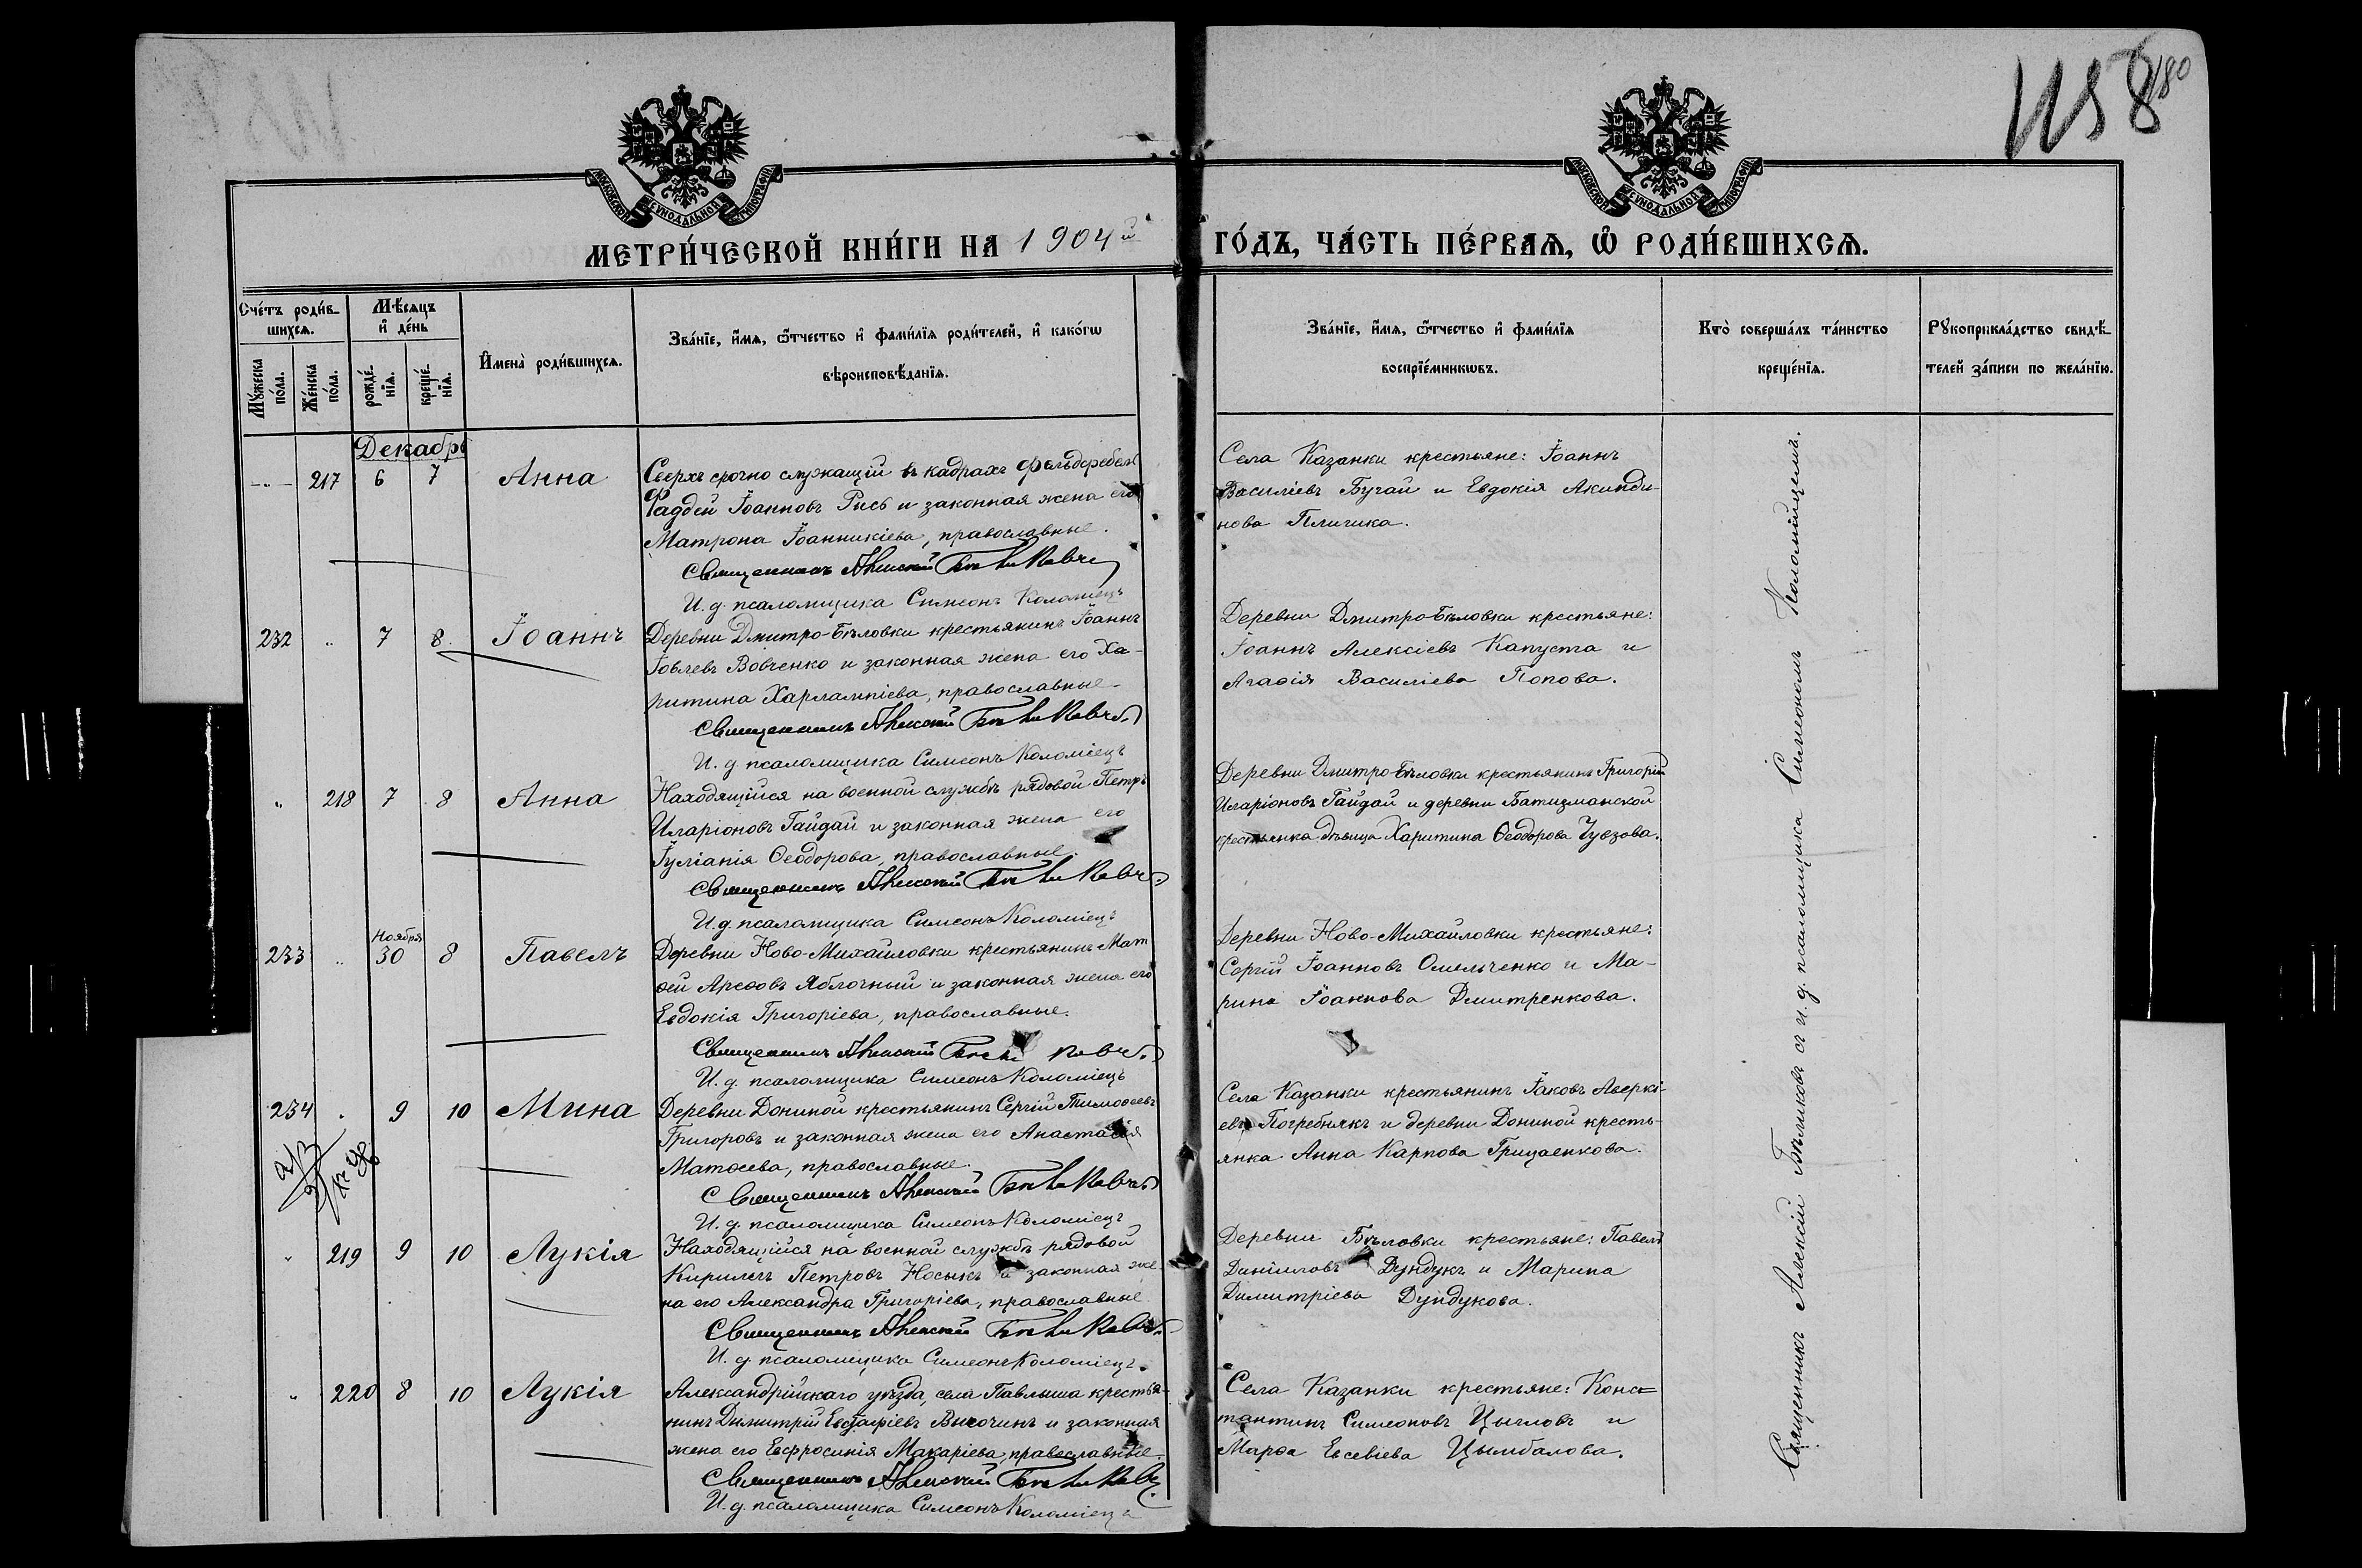 1158
180
МОСКОВСКОЙ СѴНОДАЛЬНОЙ ТИПОГРАФІИ
МОСКОВСКОЙ СѴНОДАЛЬНОЙ ТИПОГРАФІИ
МЕТРИ́ЧЕСКОЙ КНИ́ГИ НА 1904й ГО́ДЪ, ЧА́СТЬ ПЕ́РВАѦ, Ѿ РОДИ́ВШИХСѦ.
Сче́тъ роди́в-
шихсѧ.
Мꙋ́жеска
по́ла.
Же́нска
по́ла.
Мѣ́сяцъ
и҆ де́нь
рожде́-
нїѧ.
креще́-
нїѧ.
И҆мена̀ роди́вшихсѧ.
Зва́нїе, и҆́мѧ, ѻ҆́тчество и҆ фами́лїѧ роди́телей, и҆ како́гѡ
вѣроисповѣ́данїѧ.
Зва́нїе, и҆́мѧ, ѻ҆́тчество и҆ фами́лїѧ
воспрїе́мникѡвъ.
Кто̀ соверша́лъ та́инство
креще́нїѧ.
Рꙋкоприкла́дство свидѣ́-
телей за́писи по жела́нїю.
Декабрь
217 6 7 Анна
Сверхъ срочно служащій въ кадрахъ фельдфебель
Фаддей Іоанновъ Рысь и законная жена его
Матрона Іоанникіева, православные.
Священникъ Алексій Бѣликовъ
И. д. псаломщика Симеонъ Коломіецъ
Села Казанки крестьяне: Іоаннъ
Василіевъ Бугай и Евдокія Акинди-
нова Пличика.
232 " 7 8 Іоаннъ
Деревни Дмитро-Бѣловки крестьянинъ Іоаннъ
Іовлевъ Вовченко и законная жена его Ха-
ритина Харлампіева, православные
Священникъ Алексій Бѣликовъ
И. д. псаломщика Симеонъ Коломіецъ
Деревни Дмитро-Бѣловки крестьяне:
Іоаннъ Алексіевъ Капуста и
Агафія Василіева Попова.
" 218 7 8 Анна
Находящійся на военной службѣ рядовой Петръ
Иларіоновъ Гайдай и законная жена его
Іуліанія Ѳеодорова, православные.
Священникъ Алексій Бѣликовъ
И. д. псаломщика Симеонъ Коломіецъ
Деревни Дмитро-Бѣловки крестьянинъ Григорій
Иларіоновъ Гайдай и деревни Батизманской
крестьянка дѣвица Харитина Ѳеодорова Чуезова.
233 " Ноября 30 8 Павелъ
Деревни Ново-Михайловки крестьянинъ Мат
ѳей Ареѳовъ Яблочный и законная жена его
Евдокія Григоріева, православные.
Священникъ Алексій Бѣликовъ
И. д. псаломщика Симеонъ Коломіецъ
Деревни Ново-Михайловки крестьяне:
Сергій Іоанновъ Омельченко и Ма-
рина Іоаннова Дмитренкова.
234 " 9 10 Мина
Деревни Дониной крестьянинъ Сергій Тимоѳеевъ
Григоровъ и законная жена его Анастасія
Матѳеева, православные.
Священникъ Алексій Бѣликовъ
И. д. псаломщика Симеонъ Коломіецъ
Села Казанки крестьянинъ Іаковъ Аверкі-
евъ Погребнякъ и деревни Дониной кресть-
янка Анна Карпова Грицаенкова.
" 219 9 10 Лукія
Находящійся на военной службѣ рядовой
Кириллъ Петровъ Носыкъ и законная же
на его Александра Григоріева, православные
Священникъ Алексій Бѣликовъ
И. д. псаломщика Симеонъ Коломіецъ.
Деревни Бѣловки крестьяне: Павелъ
Даніиловъ Дундукъ и Марина
Димитріева Дундукова.
" 220 8 10 Лукія
Александрійскаго уѣзда, села Павлыша крестья-
нинъ Димитрій Евстафіевъ Высочинъ и законная
жена его Евфросинія Макаріева, православные
Священникъ Алексій Бѣликовъ
И. д. псаломщика Симеонъ Коломіецъ
Села Казанки крестьяне: Конс-
тантинъ Симеоновъ Цыгловъ и
Марѳа Евсевіева Цымбалова.
Священникъ Алексій Бѣликовъ съ и. д. псаломщика Симеономъ Коломійцемъ.